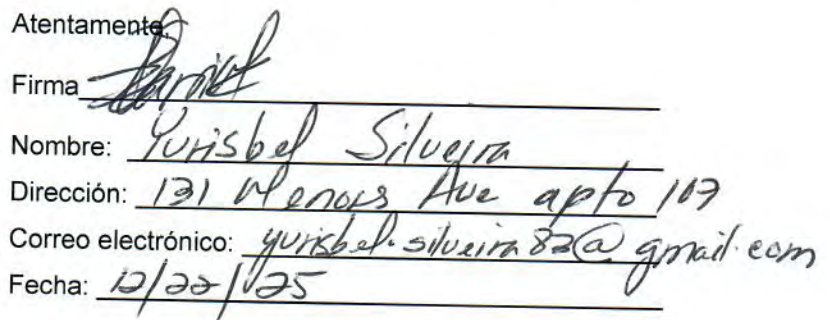 Atentamente,
Firma
Nombre: Yurisbel Silveira
Dirección: 131 Menores Ave apto 107
Correo electrónico: yurisbel.silveira82@gmail.com
Fecha: 12/22/25